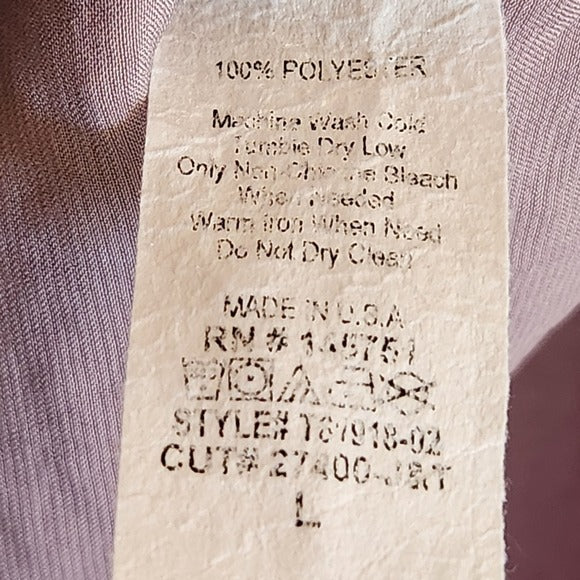 100% POLYESTER
Machine Wash Cold
Tumble Dry Low
Only Non-Chlorine Bleach
When Needed
Warm Iron When Need
Do Not Dry Clean
MADE IN U.S.A
RN #
STYLE# T87918-02
CUT# 27400-J&T
L